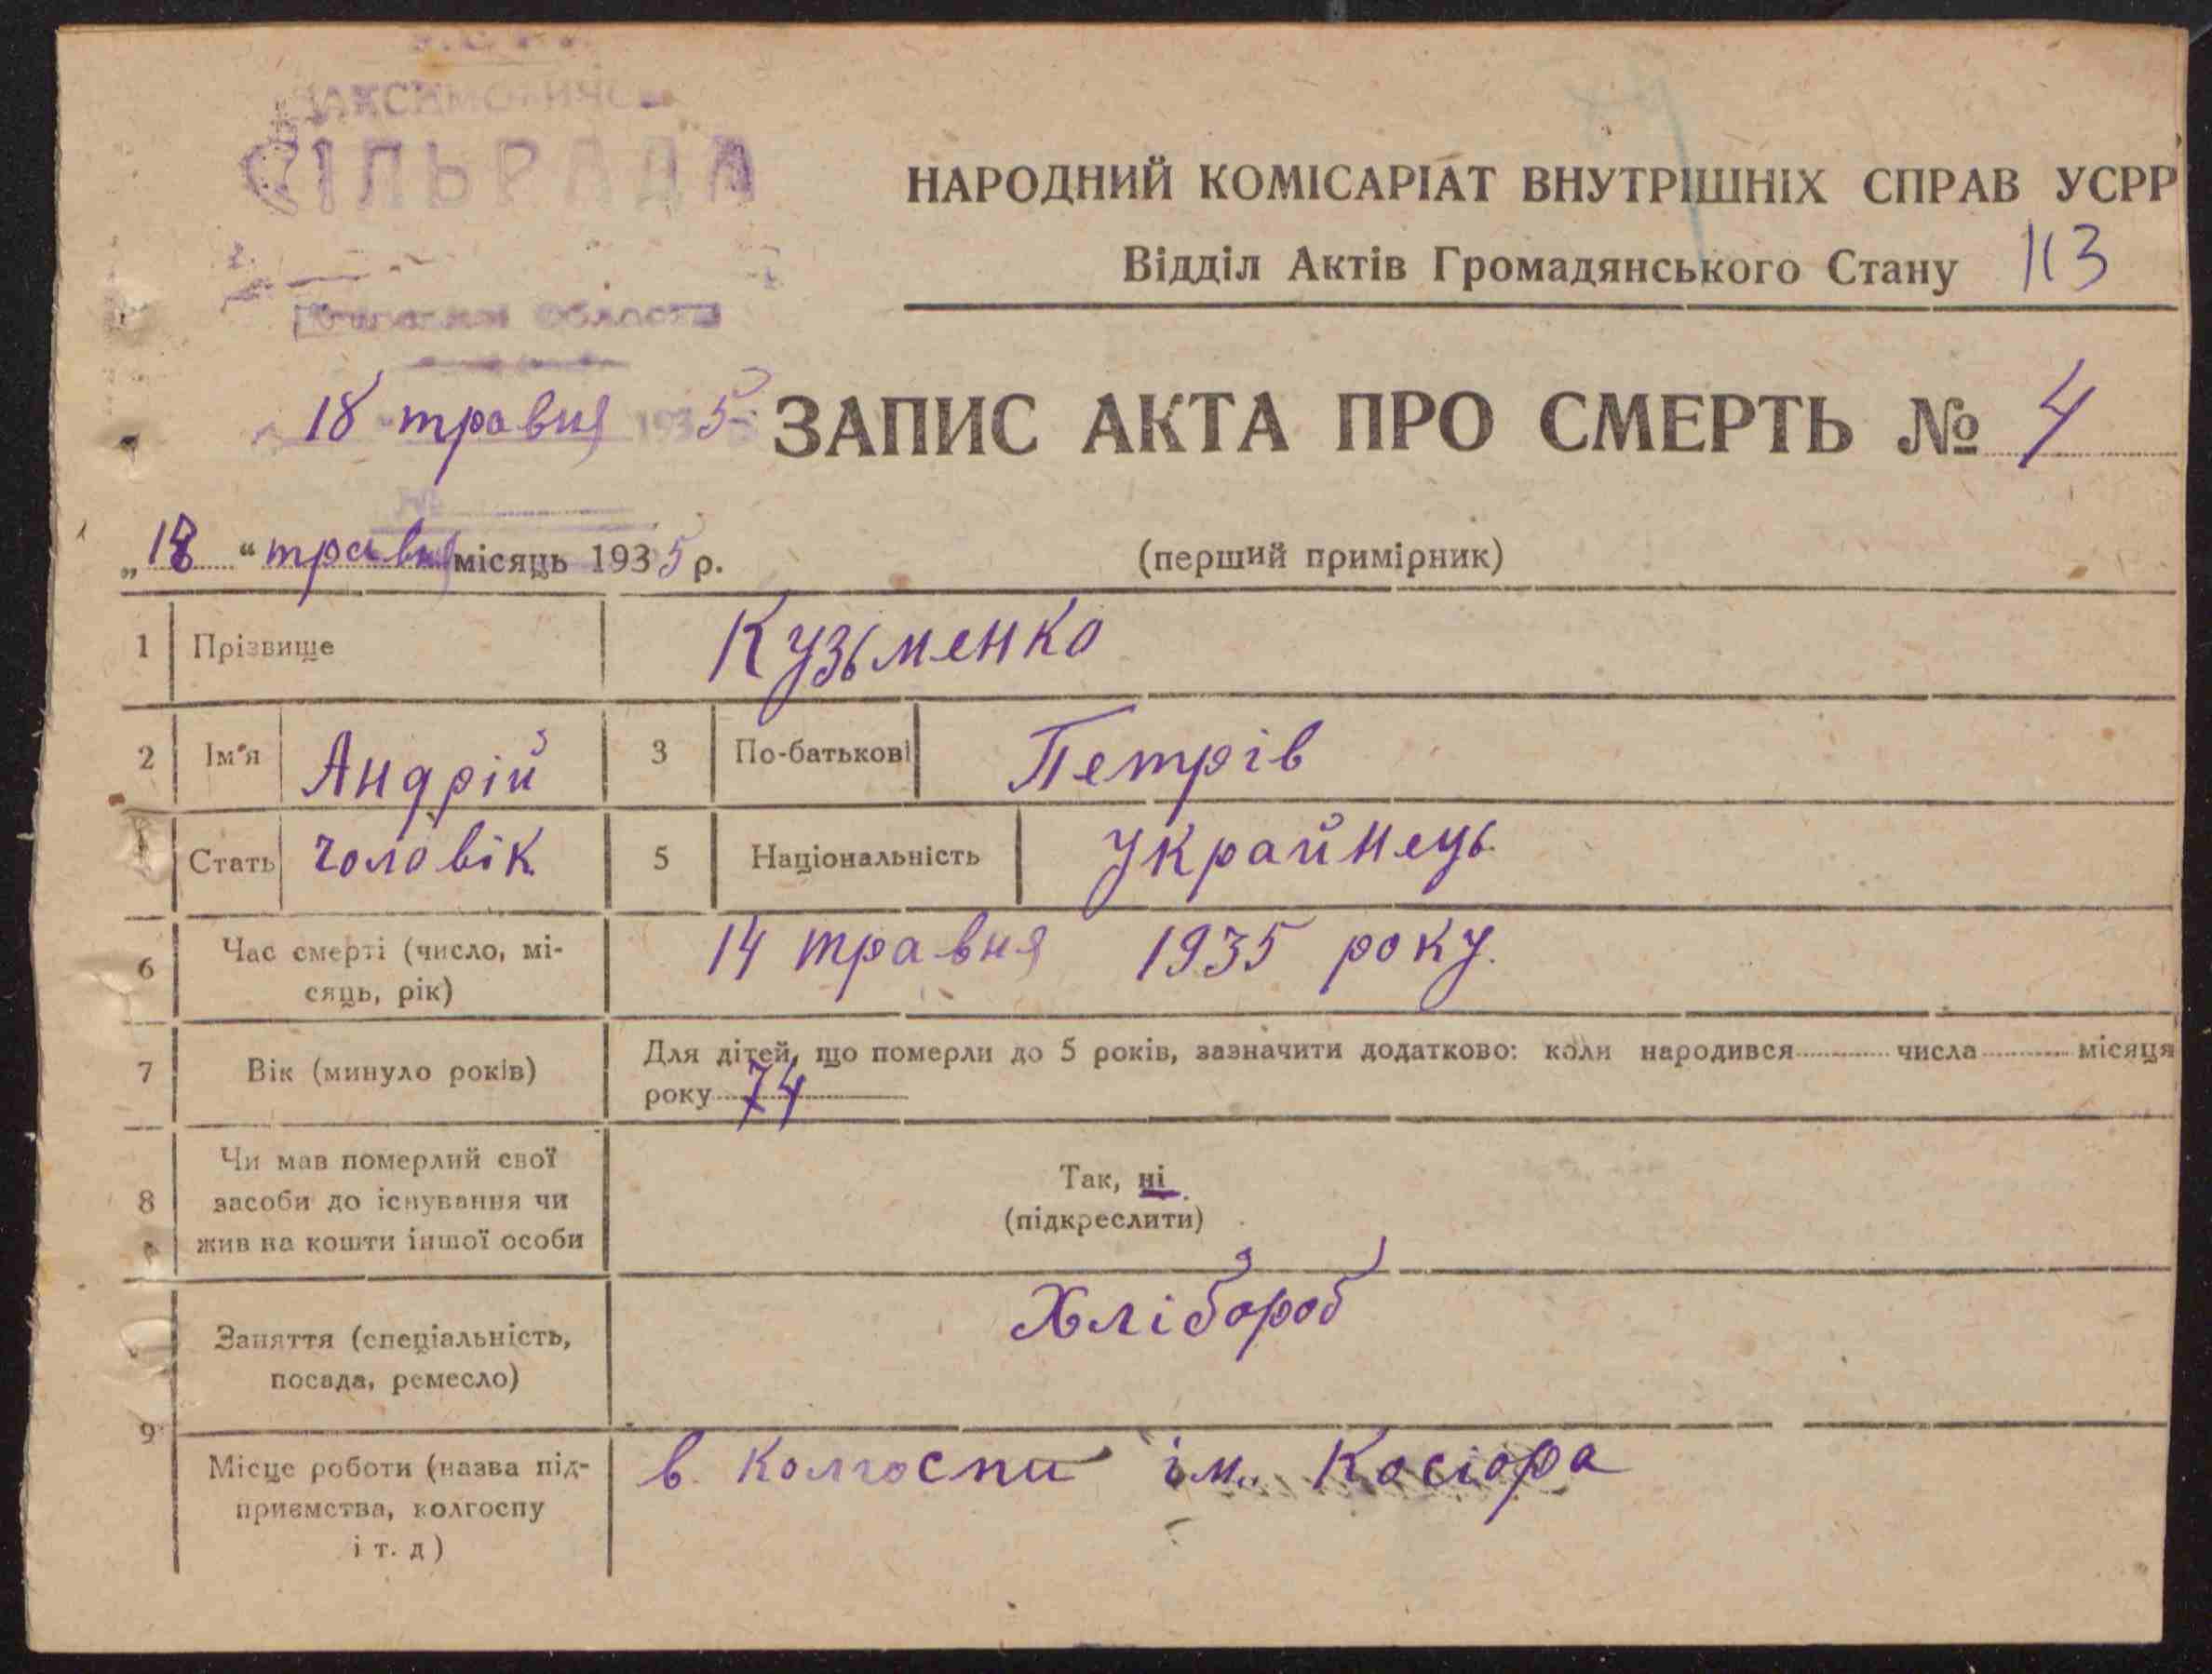 СІЛЬРАДА
Області
НАРОДНИЙ КОМІСАРІАТ ВНУТРІШНІХ СПРАВ УСРР
Відділ Актів Громадянського Стану 113
18 травня 1935
ЗАПИС АКТА ПРО СМЕРТЬ № 4
„18“ травня місяць 1935 р.
(перший примірник)
1 Прізвище Кузьменко
2 Ім'я Андрій 3 По-батькові Петрів
Стать чоловік 5 Національність Украйнець
6 Час смерті (число, мі-
сяць, рік) 14 травня 1935 року.
7 Вік (минуло років) Для дітей, що померли до 5 років, зазначити додатково: коли народився числа місяця
року 74
8 Чи мав померлий свої
засоби до існування чи
жив на кошти іншої особи
Так, ні
(підкреслити)
9 Заняття (спеціальність,
посада, ремесло) Хлібороб
Місце роботи (назва під-
приємства, колгоспу
і т. д) в колгоспи ім. Косіора